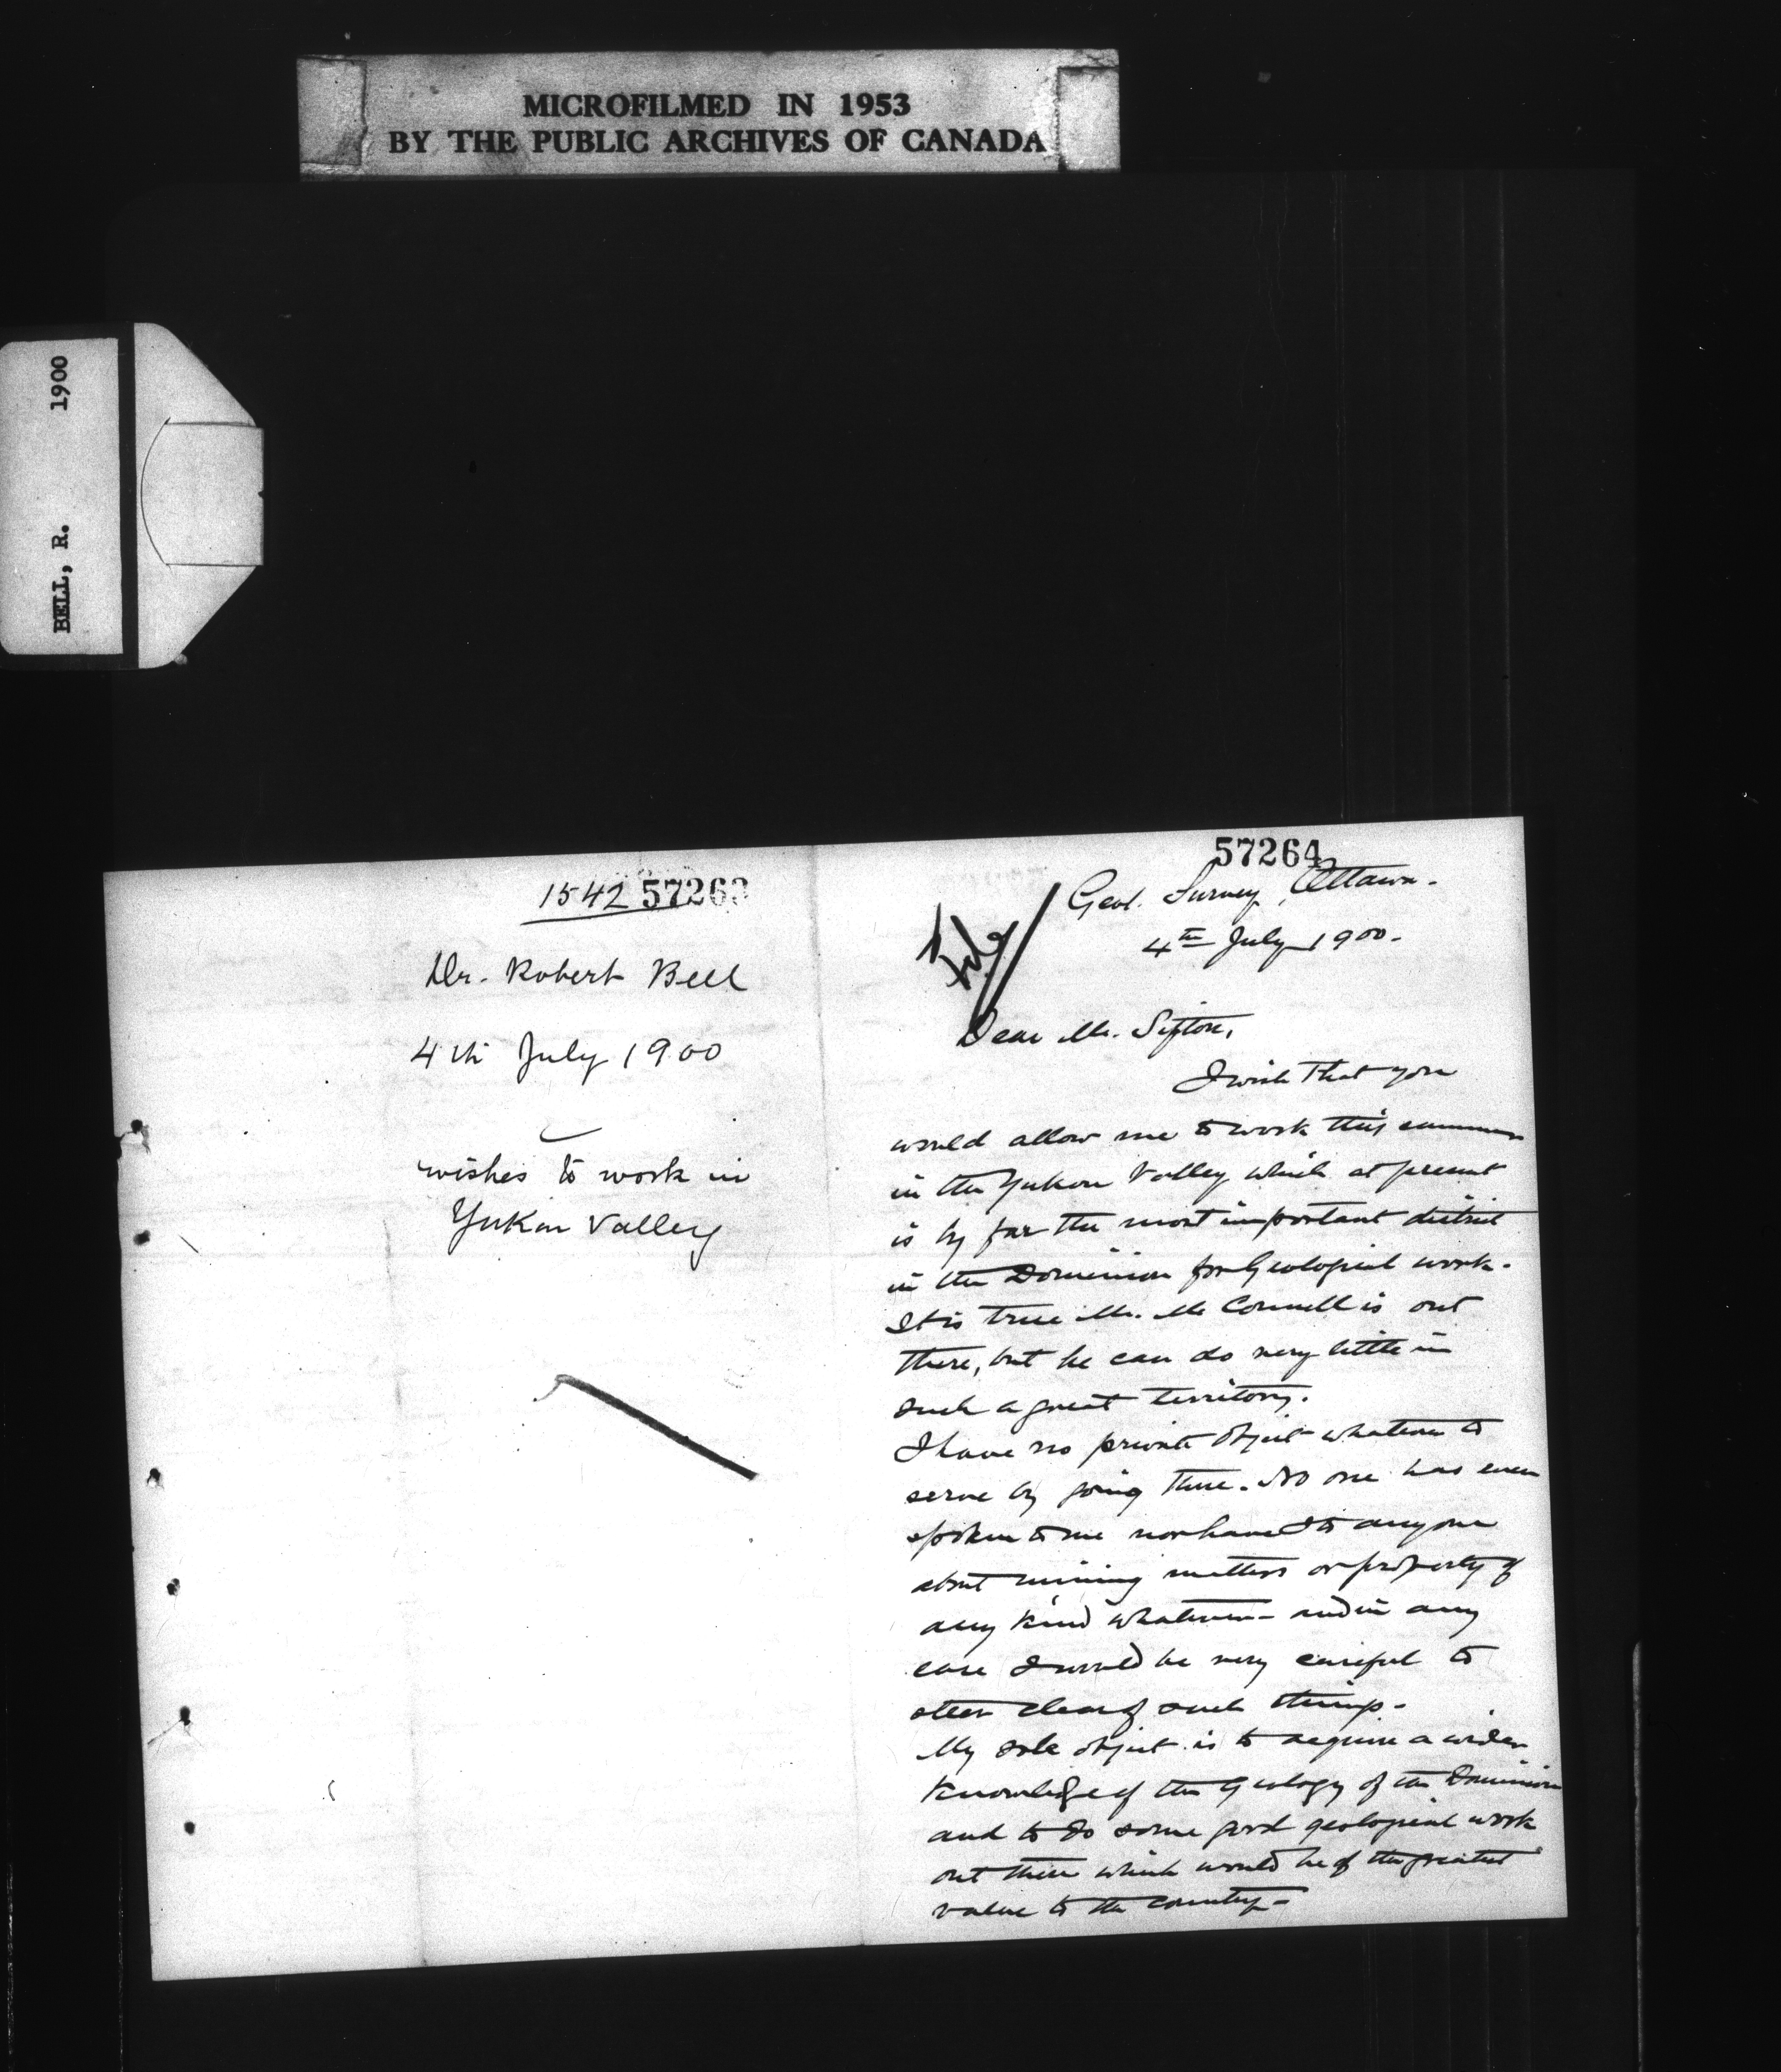 MICROFILMED IN 1953
BY THE PUBLIC ARCHIVES OF CANADA
BELL, R. 1900
1542 57263
Dr. Robert Bell
4th July 1900
wishes to work in
Yukon Valley
57264
Geol. Survey, Ottawa.
4th July 1900.
File
Dear Mr. Sifton,
I wish that you
would allow me to work this summer
in the Yukon Valley which at present
is by far the most important district
in the Dominion for Geological work.
It is true Mr. McConnell is out
there, but he can do very little in
such a great territory.
I have no private object whatever to
serve by going there. No one has ever
spoken to me nor have I to anyone
about mining matters or property of
any kind whatever - and in any
case I would be very careful to
steer clear of such things.
My sole object is to acquire a wider
knowledge of the Geology of the Dominion
and to do some good geological work
out there which would be of the greatest
value to the country -